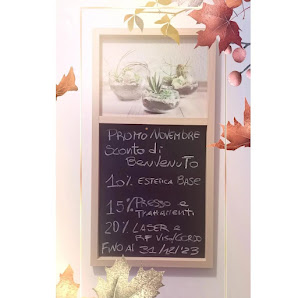 PROMO NOVEMBRE
SCONTO DI
BENVENUTO
10% ESTETICA BASE
15% PRESSO E
TRATTAMENTI
20% LASER E
RF VISO/CORPO
FINO AL 31/12/23